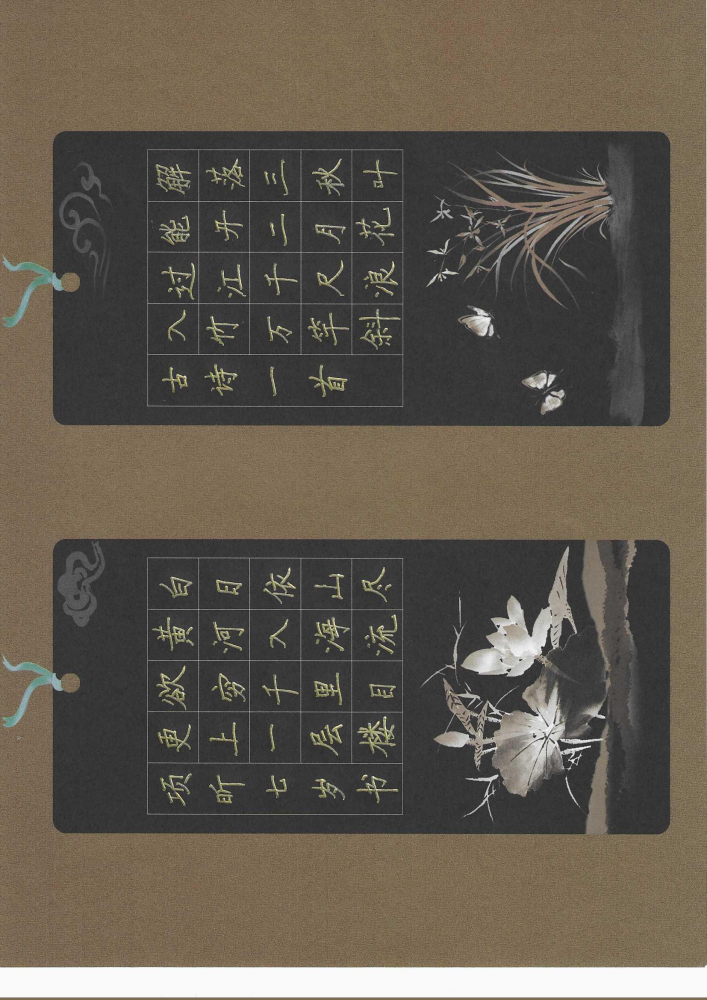 解落三秋叶
能开二月花
过江千尺浪
入竹万竿斜
古诗一首
白日依山尽
黄河入海流
欲穷千里目
更上一层楼
项昕七岁书